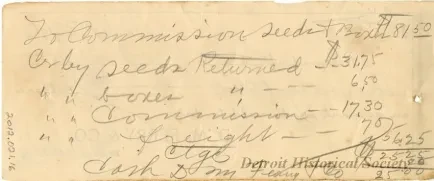 To Commission Seeds & Boxes $81.50
Cr by Seeds Returned — $31.75
" " boxes " — 6.50
" " Commission — 17.30
" " freight — 70 56.25
25.25
Cash
25 00
2012.021.16
Detroit Historical Society